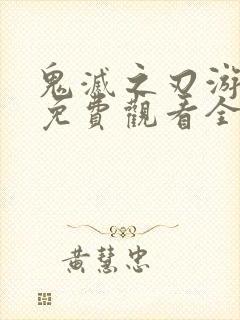 鬼滅之刃游
免費觀看全
黃慧忠